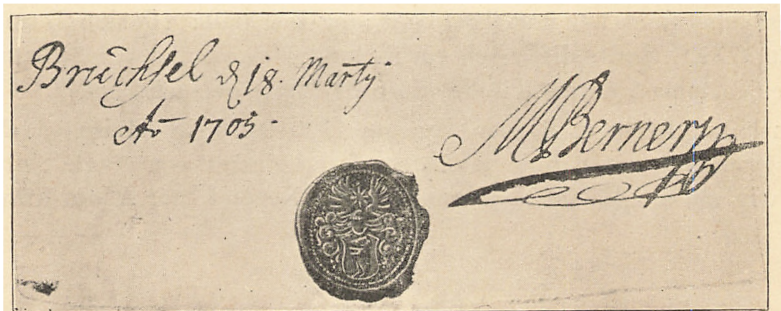 Brüchsel d 18. Martij
Aō 1705.
M Bernerin